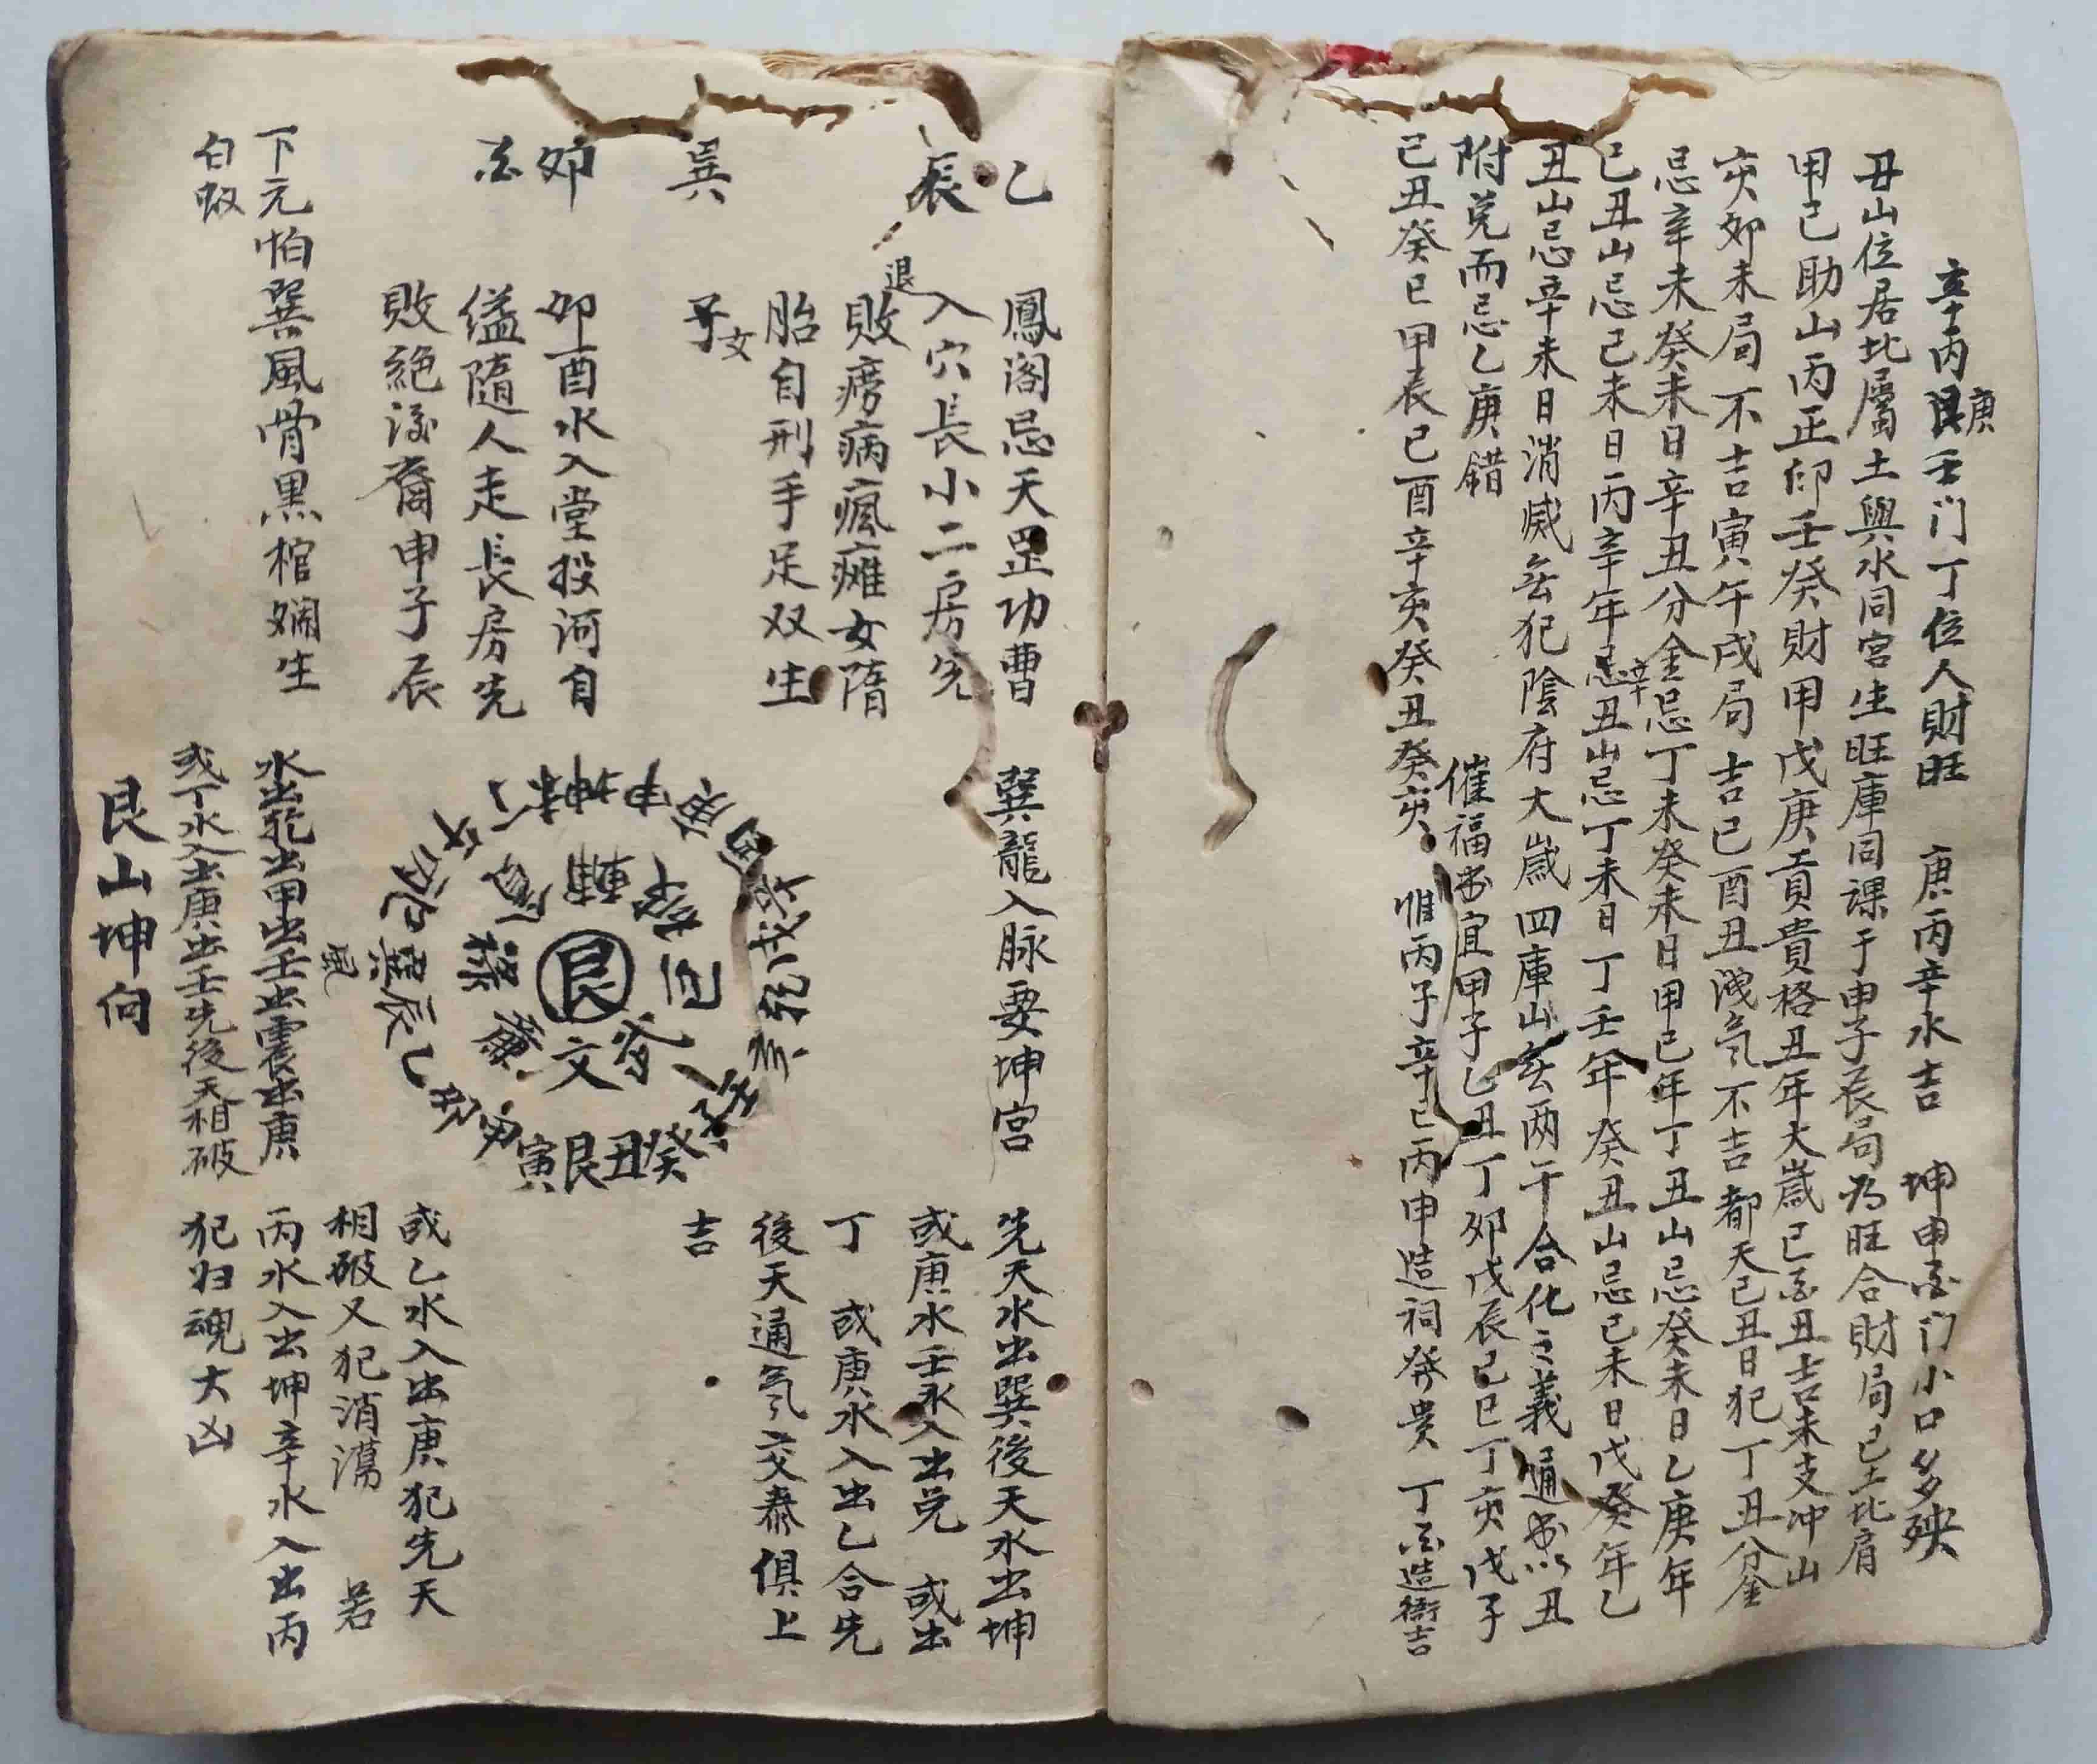 辛丙艮庚壬门丁位人財旺　庚丙辛水吉　坤申酉门小口多殃
丑山位居北屬土與水同宮生旺庫同課于申子辰局为旺合財局己土比肩
甲己助山丙正印壬癸財甲戊庚貴貴格丑年大歲巳酉丑吉未支冲山
亥卯未局不吉寅午戌局吉巳酉丑洩氣不吉都天己丑日犯丁丑分金
忌辛未癸未日辛丑分金忌丁未癸未日甲己年丁丑山忌癸未日乙庚年
己丑山忌己未日丙辛年辛丑山忌丁未日丁壬年癸丑山忌己未日戊癸年乙
丑山忌辛未日消滅㐫犯陰府大歲四庫山㐫两干合化之義通书以丑
附兌而忌乙庚錯　催福书宜甲子乙丑丁卯戊辰己巳丁亥戊子
己丑癸巳甲辰己酉辛亥癸丑癸亥　惟丙子辛巳丙申造祠發貴　丁酉造衙吉
乙　鳳阁忌天罡功曹
辰　入穴長小二房先
退敗痨病瘋瘫女隋
胎自刑手足双生
巽　子女
卯　卯酉水入堂投河自
酉　縊隨人走長房先
敗絕後裔申子辰
下元怕巽風骨黑棺爛生
白蚁
巽龍入脉要坤宫
艮
文
寅艮丑癸
水出乾出甲出壬出震出庚
或丁水入出庚出壬先後天相破
艮山坤向
先天水出巽後天水出坤
或庚水壬水入出兑　或出
丁　或庚水入出乙合先
後天通氣交泰俱上
吉
或乙水入出庚犯先天
相破又犯消濶　若
丙水入出坤辛水入出丙
犯归魂大凶